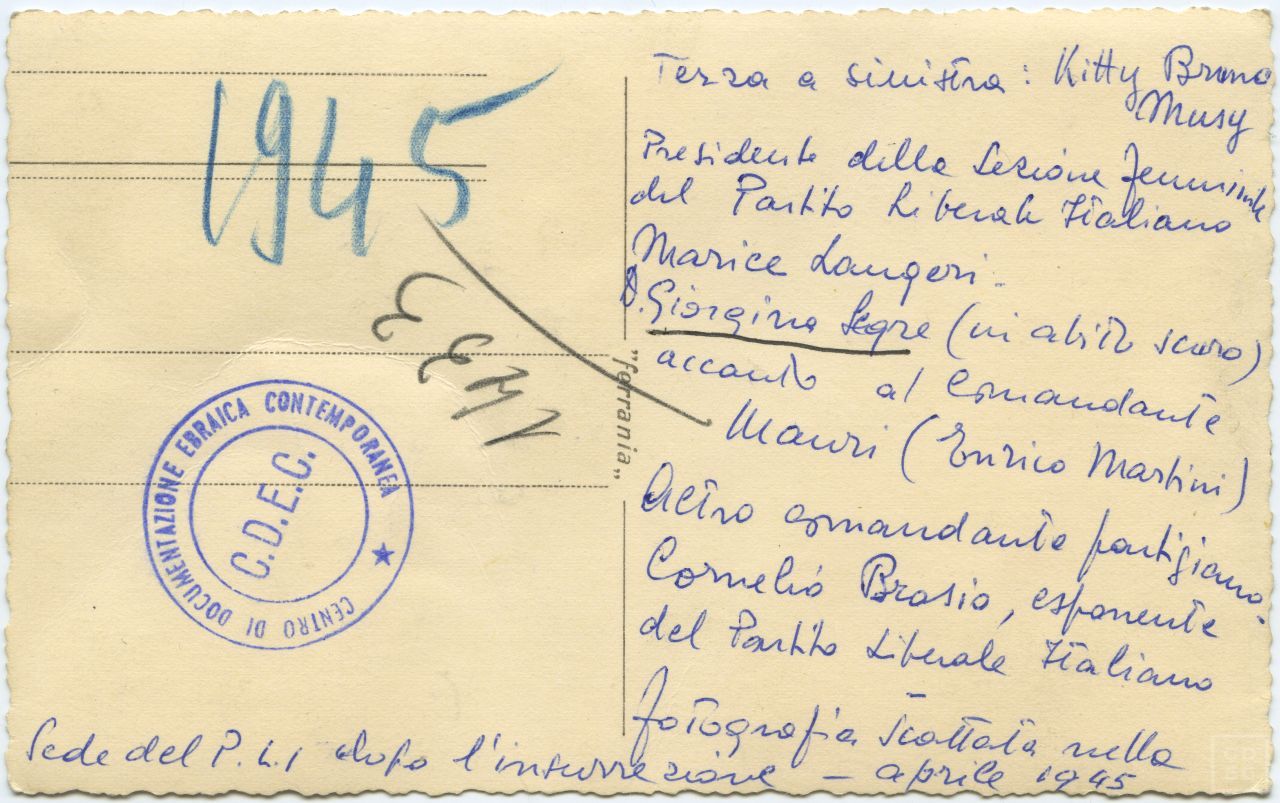 1945
1433
"ferrania"
CENTRO DI DOCUMENTAZIONE EBRAICA CONTEMPORANEA
C.D.E.C.
Terza a sinistra: Kitty Bruno
Musy
Presidente della Sezione femminile
del Partito Liberale Italiano
Marice Langeri.
Giorgina Segre (in abito scuro)
accanto al Comandante
Mauri (Enrico Martini)
Altro comandante partigiano
Cornelio Brasio, esponente
del Partito Liberale Italiano
fotografia scattata nella
Sede del P.L.I dopo l'insurrezione – aprile 1945